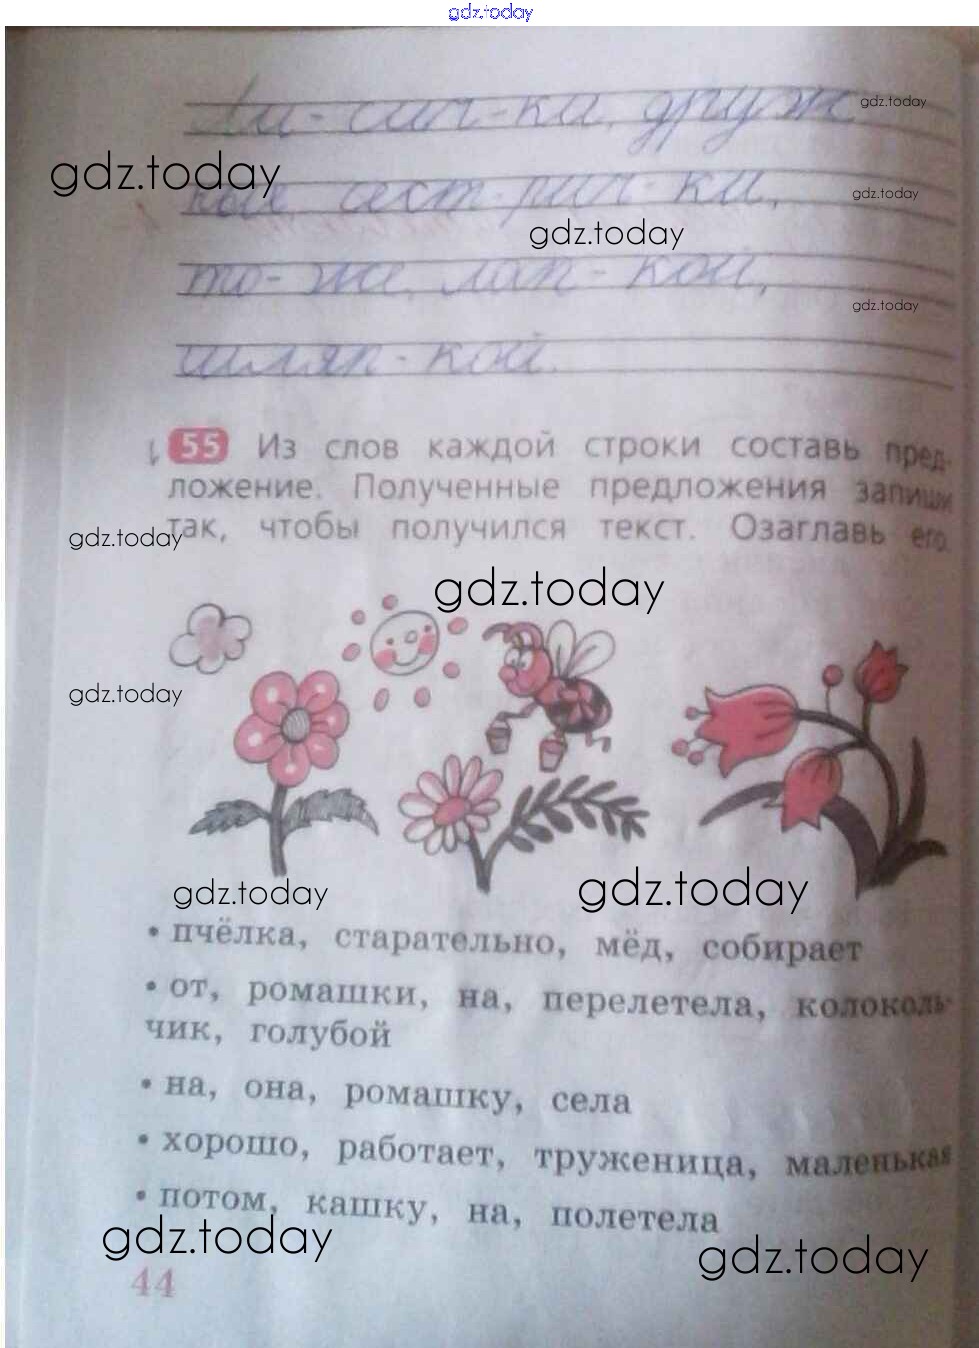 gdz.today
Ли-сич-ки, друж
gdz.today
gdz.today
ной сест-рич-ки,
gdz.today
gdz.today
то-же, лап-кой,
gdz.today
шляп-кой.
55 Из слов каждой строки составь пред-
ложение. Полученные предложения запиши
так, чтобы получился текст. Озаглавь его.
gdz.today
gdz.today
gdz.today
gdz.today
gdz.today
• пчёлка, старательно, мёд, собирает
• от, ромашки, на, перелетела, колоколь-
чик, голубой
• на, она, ромашку, села
• хорошо, работает, труженица, маленькая
• потом, кашку, на, полетела
gdz.today
gdz.today
44